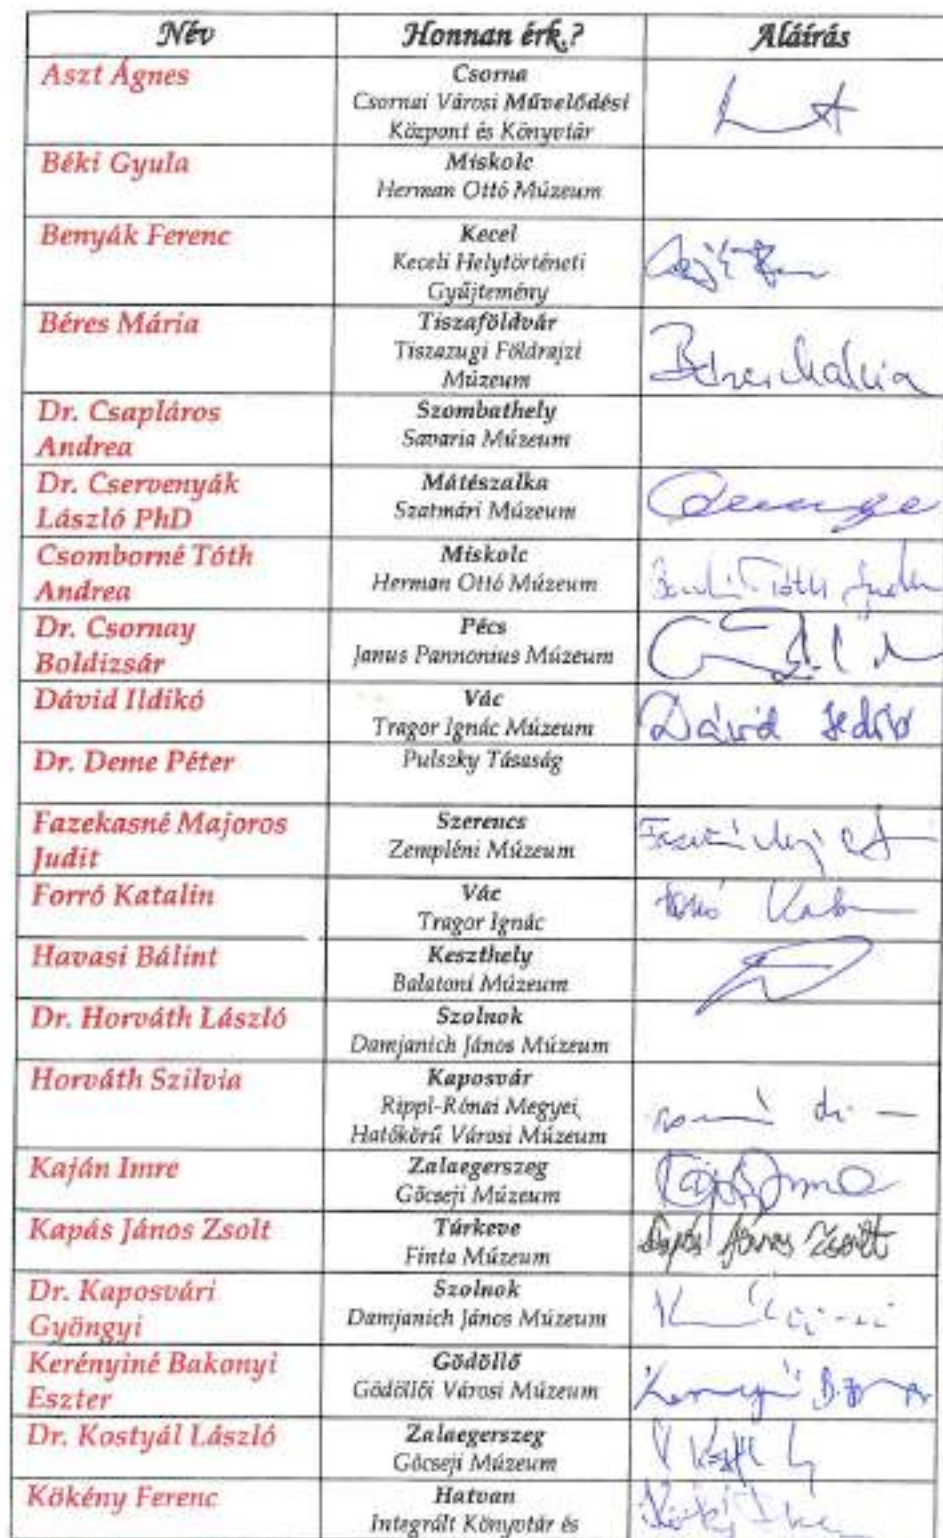 Név Honnan érk.? Aláírás
Aszt Ágnes Csorna
Csornai Városi Művelődési
Központ és Könyvtár
Béki Gyula Miskolc
Herman Ottó Múzeum
Benyák Ferenc Kecel
Keceli Helytörténeti
Gyűjtemény
Béres Mária Tiszaföldvár
Tiszazugi Földrajzi
Múzeum
Dr. Csapláros Szombathely
Andrea Savaria Múzeum
Dr. Cservenyák Mátészalka
László PhD Szatmári Múzeum
Csomborné Tóth Miskolc
Andrea Herman Ottó Múzeum
Dr. Csornay Pécs
Boldizsár Janus Pannonius Múzeum
Dávid Ildikó Vác
Tragor Ignác Múzeum Dávid Ildikó
Dr. Deme Péter Pulszky Tásaság
Fazekasné Majoros Szerencs
Judit Zempléni Múzeum
Forró Katalin Vác
Tragor Ignác
Havasi Bálint Keszthely
Balatoni Múzeum
Dr. Horváth László Szolnok
Damjanich János Múzeum
Horváth Szilvia Kaposvár
Rippl-Rónai Megyei
Hatókörű Városi Múzeum
Kaján Imre Zalaegerszeg
Göcseji Múzeum
Kapás János Zsolt Túrkeve Kapás János Zsolt
Finta Múzeum
Dr. Kaposvári Szolnok
Gyöngyi Damjanich János Múzeum
Kerényiné Bakonyi Gödöllő
Eszter Gödöllői Városi Múzeum
Dr. Kostyál László Zalaegerszeg
Göcseji Múzeum
Kökény Ferenc Hatvan
Integrált Könyvtár és